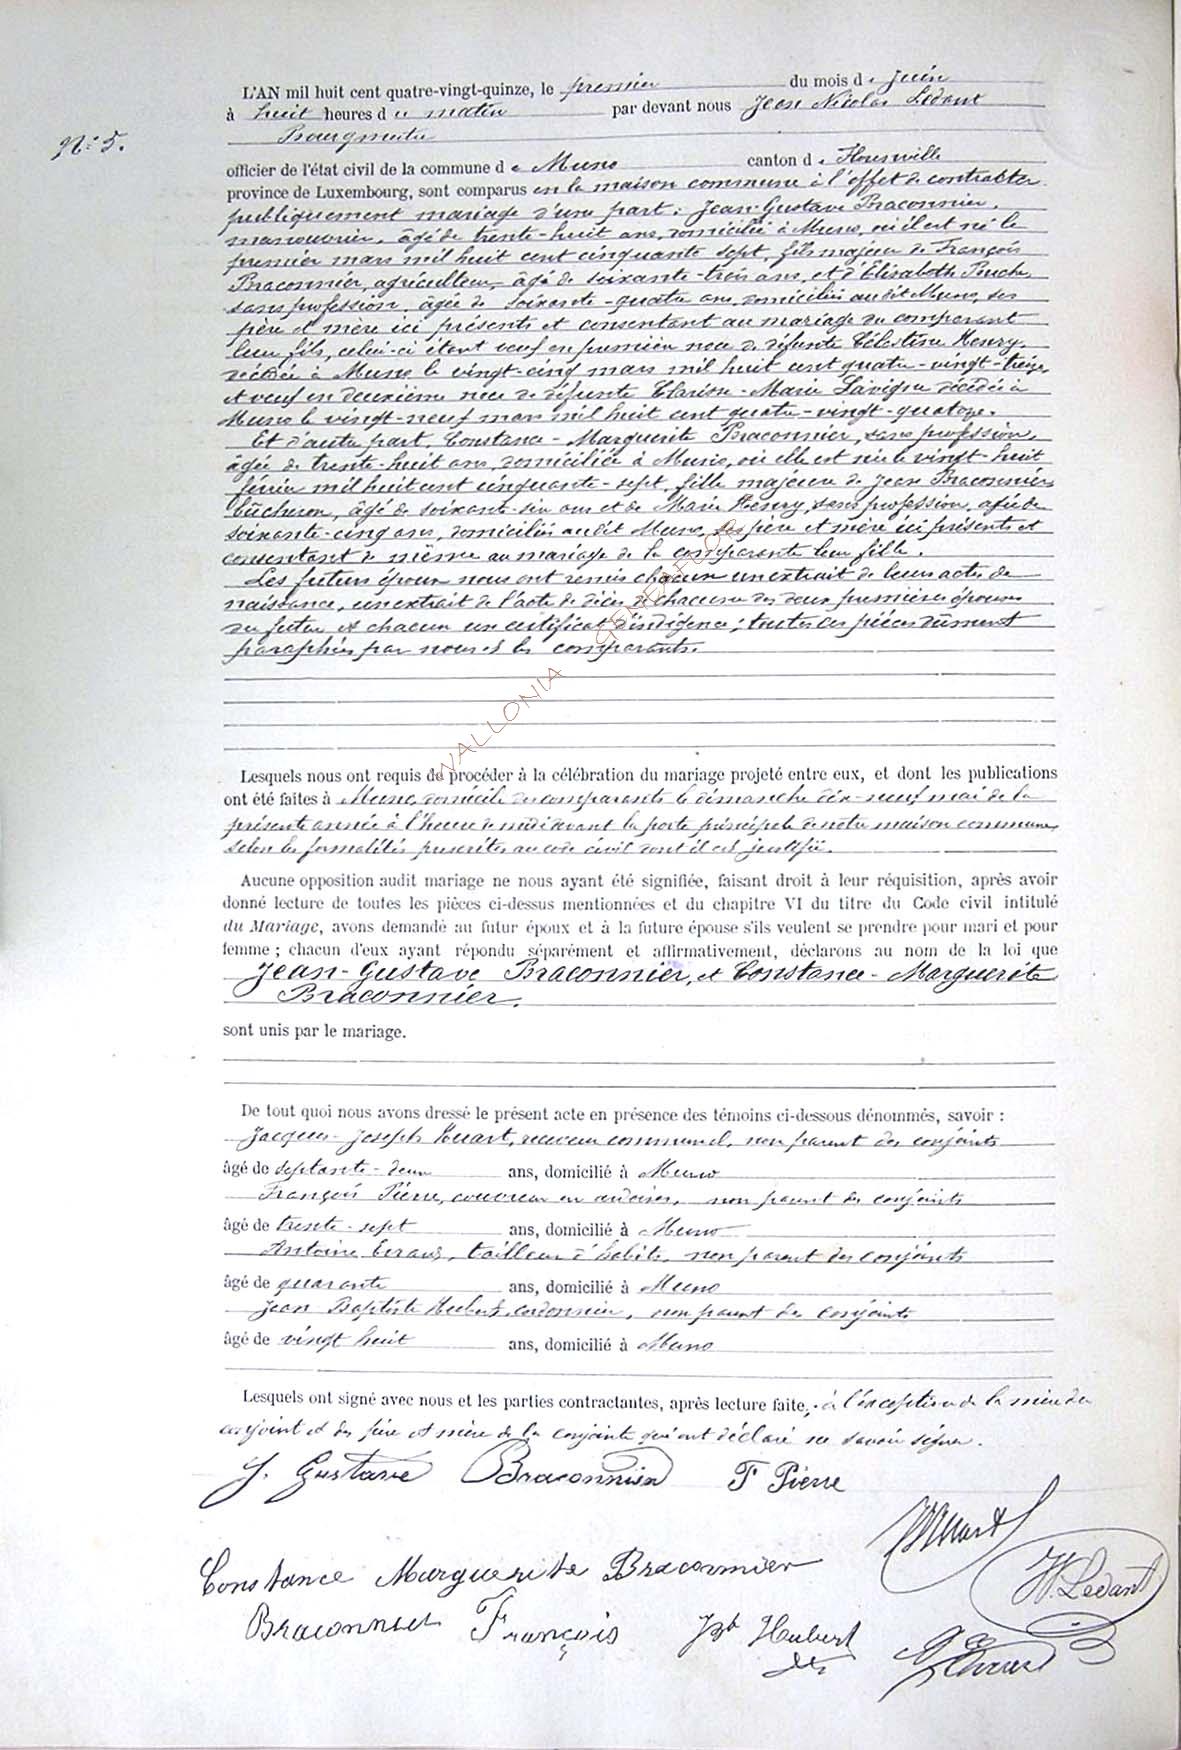 L'AN mil huit cent quatre-vingt-quinze, le premier du mois de Juin
à huit heures du matin par devant nous Jean Nicolas Ledant
Bourgmestre
N° 5.
officier de l'état civil de la commune de Muno canton de Florenville
province de Luxembourg, sont comparus en la maison commune à l'effet de contracter
publiquement mariage d'une part : Jean-Gustave Braconnier,
manouvrier, âgé de trente-huit ans, domicilié à Muno, où il est né le
premier mars mil huit cent cinquante sept, fils majeur de François
Braconnier, agriculteur, âgé de soixante-trois ans, et d'Elisabeth
sans profession, âgée de soixante-quatre ans, domiciliés audit Muno, ses
père et mère ici présents et consentant au mariage du comparant
leur fils, celui-ci étant veuf en premières noces de défunte Célestine Henry,
décédée à Muno le vingt-cinq mars mil huit cent quatre-vingt-treize
et veuf en deuxième noce de défunte Clarisse-Marie Lavigne décédée à
Muno le vingt-neuf mars mil huit cent quatre-vingt-quatorze.
Et d'autre part, Constance-Marguerite Braconnier, sans profession,
âgée de trente-huit ans, domiciliée à Muno, où elle est née le vingt-huit
février mil huit cent cinquante-sept, fille majeure de Jean Braconnier
bûcheron, âgé de soixante-six ans et de Marie Henry, sans profession, âgée de
soixante-cinq ans, domiciliés audit Muno, ses père et mère ici présents et
consentant de même au mariage de la comparante leur fille.
Les futurs époux nous ont remis chacun un extrait de leurs actes de
naissance, un extrait de l'acte de décès de chacune des deux premières épouses
du futur et chacun un certificat d'indigence ; toutes ces pièces dûment
paraphées par nous et les comparants.
WALLONIA GENEAFLOR
Lesquels nous ont requis de procéder à la célébration du mariage projeté entre eux, et dont les publications
ont été faites à Muno, domicile des comparants le dimanche dix-neuf mai de la
présente année à l'heure de midi devant la porte principale de notre maison commune,
selon les formalités prescrites au code civil dont il est justifié.
Aucune opposition audit mariage ne nous ayant été signifiée, faisant droit à leur réquisition, après avoir
donné lecture de toutes les pièces ci-dessus mentionnées et du chapitre VI du titre du Code civil intitulé
du Mariage, avons demandé au futur époux et à la future épouse s'ils veulent se prendre pour mari et pour
femme ; chacun d'eux ayant répondu séparément et affirmativement, déclarons au nom de la loi que
Jean-Gustave Braconnier, et Constance-Marguerite
Braconnier.
sont unis par le mariage.
De tout quoi nous avons dressé le présent acte en présence des témoins ci-dessous dénommés, savoir :
Jacques-Joseph Huart, receveur communal, non parent des conjoints
âgé de septante-deux ans, domicilié à Muno
François Pierre, couvreur en ardoises, non parent des conjoints
âgé de trente-sept ans, domicilié à Muno
Antoine Evrard, tailleur d'habits, non parent des conjoints
âgé de quarante ans, domicilié à Muno
Jean Baptiste Hubert, cordonnier, non parent des conjoints
âgé de vingt huit ans, domicilié à Muno
Lesquels ont signé avec nous et les parties contractantes, après lecture faite, à l'exception de la mère du
conjoint et des père et mère de la conjointe qui ont déclaré ne savoir signer.
J. Gustave Braconnier F Pierre
Huart
Constance Marguerite Braconnier
N. Ledant
Braconnier François Jph Hubert
Evrard